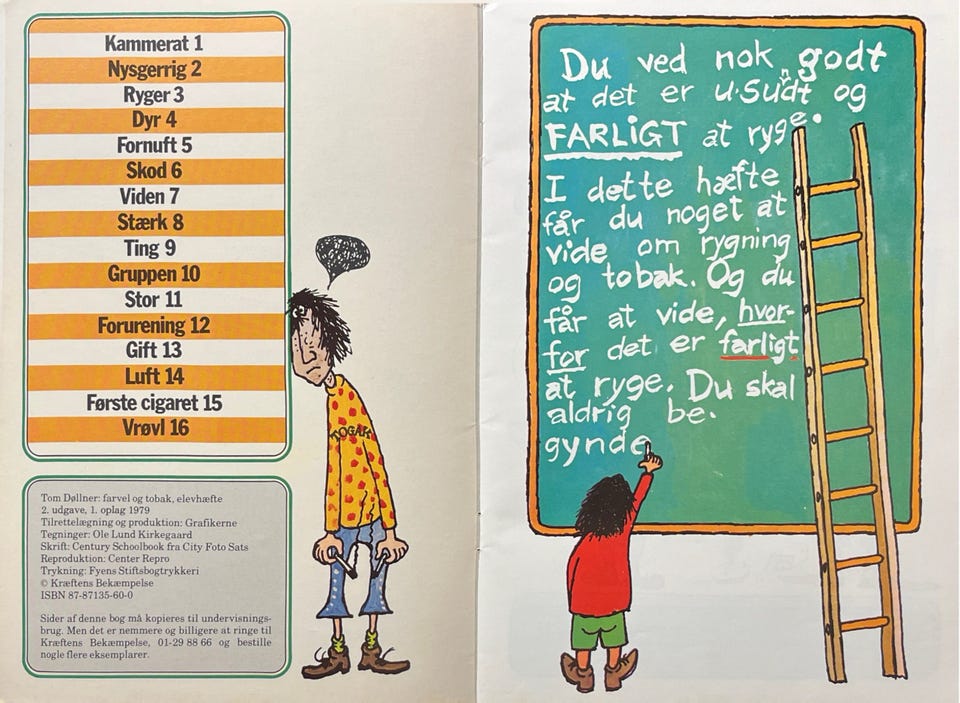 Kammerat 1
Nysgerrig 2
Ryger 3
Dyr 4
Fornuft 5
Skod 6
Viden 7
Stærk 8
Ting 9
Gruppen 10
Stor 11
Forurening 12
Gift 13
Luft 14
Første cigaret 15
Vrøvl 16
Tom Døllner: farvel og tobak, elevhæfte
2. udgave, 1. oplag 1979
Tilrettelægning og produktion: Grafikerne
Tegninger: Ole Lund Kirkegaard
Skrift: Century Schoolbook fra City Foto Sats
Reproduktion: Center Repro
Trykning: Fyens Stiftsbogtrykkeri
© Kræftens Bekæmpelse
ISBN 87-87135-60-0
Sider af denne bog må kopieres til undervisnings-
brug. Men det er nemmere og billigere at ringe til
Kræftens Bekæmpelse, 01-29 88 66 og bestille
nogle flere eksemplarer.
Du ved nok godt
at det er u·sundt og
FARLiGT at ryge.
I dette hæfte
får du noget at
vide om rygning
og tobak. Og du
får at vide, hvor-
for det er farligt
at ryge. Du skal
aldrig be·
gynde